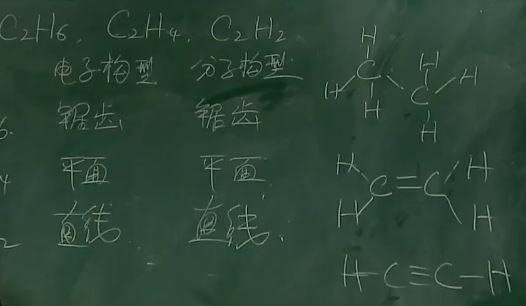 C₂H₆, C₂H₄, C₂H₂
电子构型 分子构型
6. 锯齿 锯齿
4 平面 平面
2 直线 直线.
H
H C H H
H C
H
H H
C=C
H H
H-C≡C-H